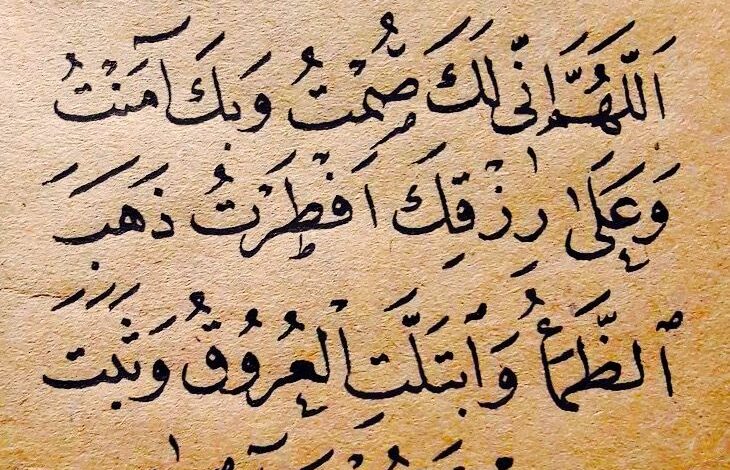 اَللّٰهُمَّ اِنِّي لَكَ صُمْتُ وَبِكَ آمَنْتُ
وَعَلَى رِزْقِكَ اَفْطَرْتُ ذَهَبَ
ٱلظَّمَأُ وَٱبْتَلَّتِ الْعُرُوْقُ وَثَبَتَ